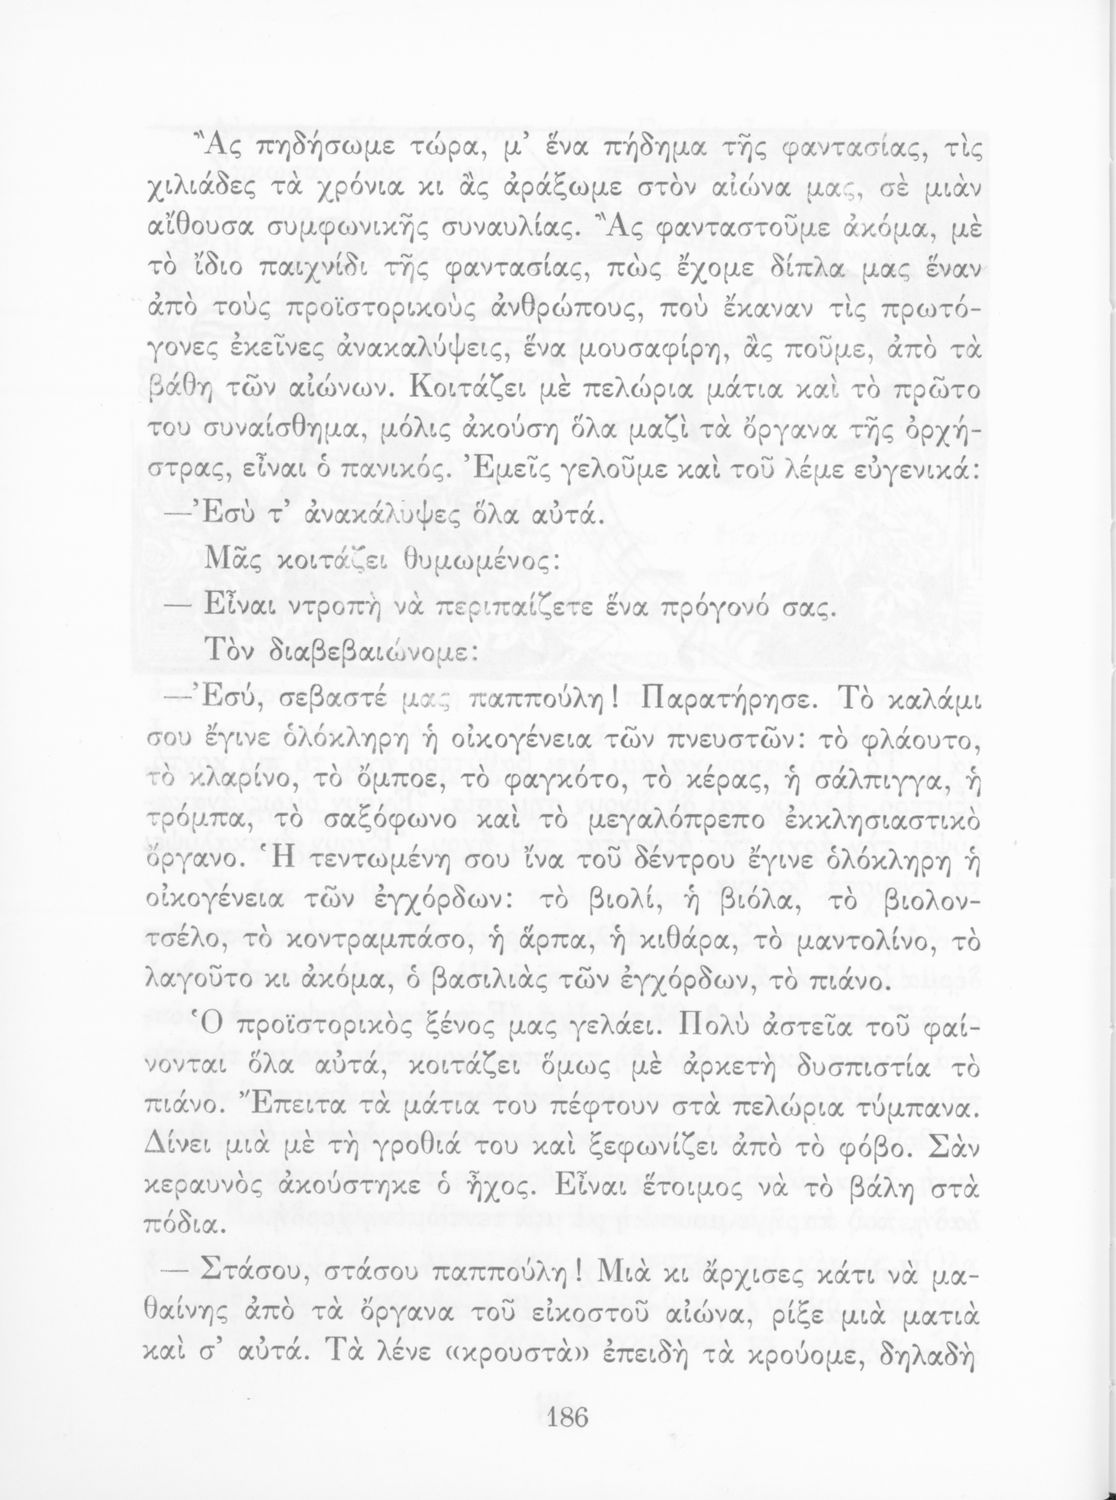 Ἂς πηδήσωμε τώρα, μ’ ἕνα πήδημα τῆς φαντασίας, τὶς
χιλιάδες τὰ χρόνια κι ἂς ἀράξωμε στὸν αἰώνα μας, σὲ μιὰν
αἴθουσα συμφωνικῆς συναυλίας. Ἂς φανταστοῦμε ἀκόμα, μὲ
τὸ ἴδιο παιχνίδι τῆς φαντασίας, πὼς ἔχομε δίπλα μας ἕναν
ἀπὸ τοὺς προϊστορικοὺς ἀνθρώπους, ποὺ ἔκαναν τὶς πρωτό-
γονες ἐκεῖνες ἀνακαλύψεις, ἕνα μουσαφίρη, ἂς ποῦμε, ἀπὸ τὰ
βάθη τῶν αἰώνων. Κοιτάζει μὲ πελώρια μάτια καὶ τὸ πρῶτο
του συναίσθημα, μόλις ἀκούση ὅλα μαζὶ τὰ ὄργανα τῆς ὀρχή-
στρας, εἶναι ὁ πανικός. Ἐμεῖς γελοῦμε καὶ τοῦ λέμε εὐγενικά:
—Ἐσὺ τ’ ἀνακάλυψες ὅλα αὐτά.
Μᾶς κοιτάζει θυμωμένος:
— Εἶναι ντροπὴ νὰ περιπαίζετε ἕνα πρόγονό σας.
Τὸν διαβεβαιώνομε:
—Ἐσύ, σεβαστέ μας παππούλη! Παρατήρησε. Τὸ καλάμι
σου ἔγινε ὁλόκληρη ἡ οἰκογένεια τῶν πνευστῶν: τὸ φλάουτο,
τὸ κλαρίνο, τὸ ὄμποε, τὸ φαγκότο, τὸ κέρας, ἡ σάλπιγγα, ἡ
τρόμπα, τὸ σαξόφωνο καὶ τὸ μεγαλόπρεπο ἐκκλησιαστικὸ
ὄργανο. Ἡ τεντωμένη σου ἴνα τοῦ δέντρου ἔγινε ὁλόκληρη ἡ
οἰκογένεια τῶν ἐγχόρδων: τὸ βιολί, ἡ βιόλα, τὸ βιολον-
τσέλο, τὸ κοντραμπάσο, ἡ ἅρπα, ἡ κιθάρα, τὸ μαντολίνο, τὸ
λαγοῦτο κι ἀκόμα, ὁ βασιλιὰς τῶν ἐγχόρδων, τὸ πιάνο.
Ὁ προϊστορικὸς ξένος μας γελάει. Πολὺ ἀστεῖα τοῦ φαί-
νονται ὅλα αὐτά, κοιτάζει ὅμως μὲ ἀρκετὴ δυσπιστία τὸ
πιάνο. Ἔπειτα τὰ μάτια του πέφτουν στὰ πελώρια τύμπανα.
Δίνει μιὰ μὲ τὴ γροθιά του καὶ ξεφωνίζει ἀπὸ τὸ φόβο. Σὰν
κεραυνὸς ἀκούστηκε ὁ ἦχος. Εἶναι ἕτοιμος νὰ τὸ βάλη στὰ
πόδια.
— Στάσου, στάσου παππούλη! Μιὰ κι ἄρχισες κάτι νὰ μα-
θαίνης ἀπὸ τὰ ὄργανα τοῦ εἰκοστοῦ αἰώνα, ρίξε μιὰ ματιὰ
καὶ σ’ αὐτά. Τὰ λένε «κρουστὰ» ἐπειδὴ τὰ κρούομε, δηλαδὴ
186